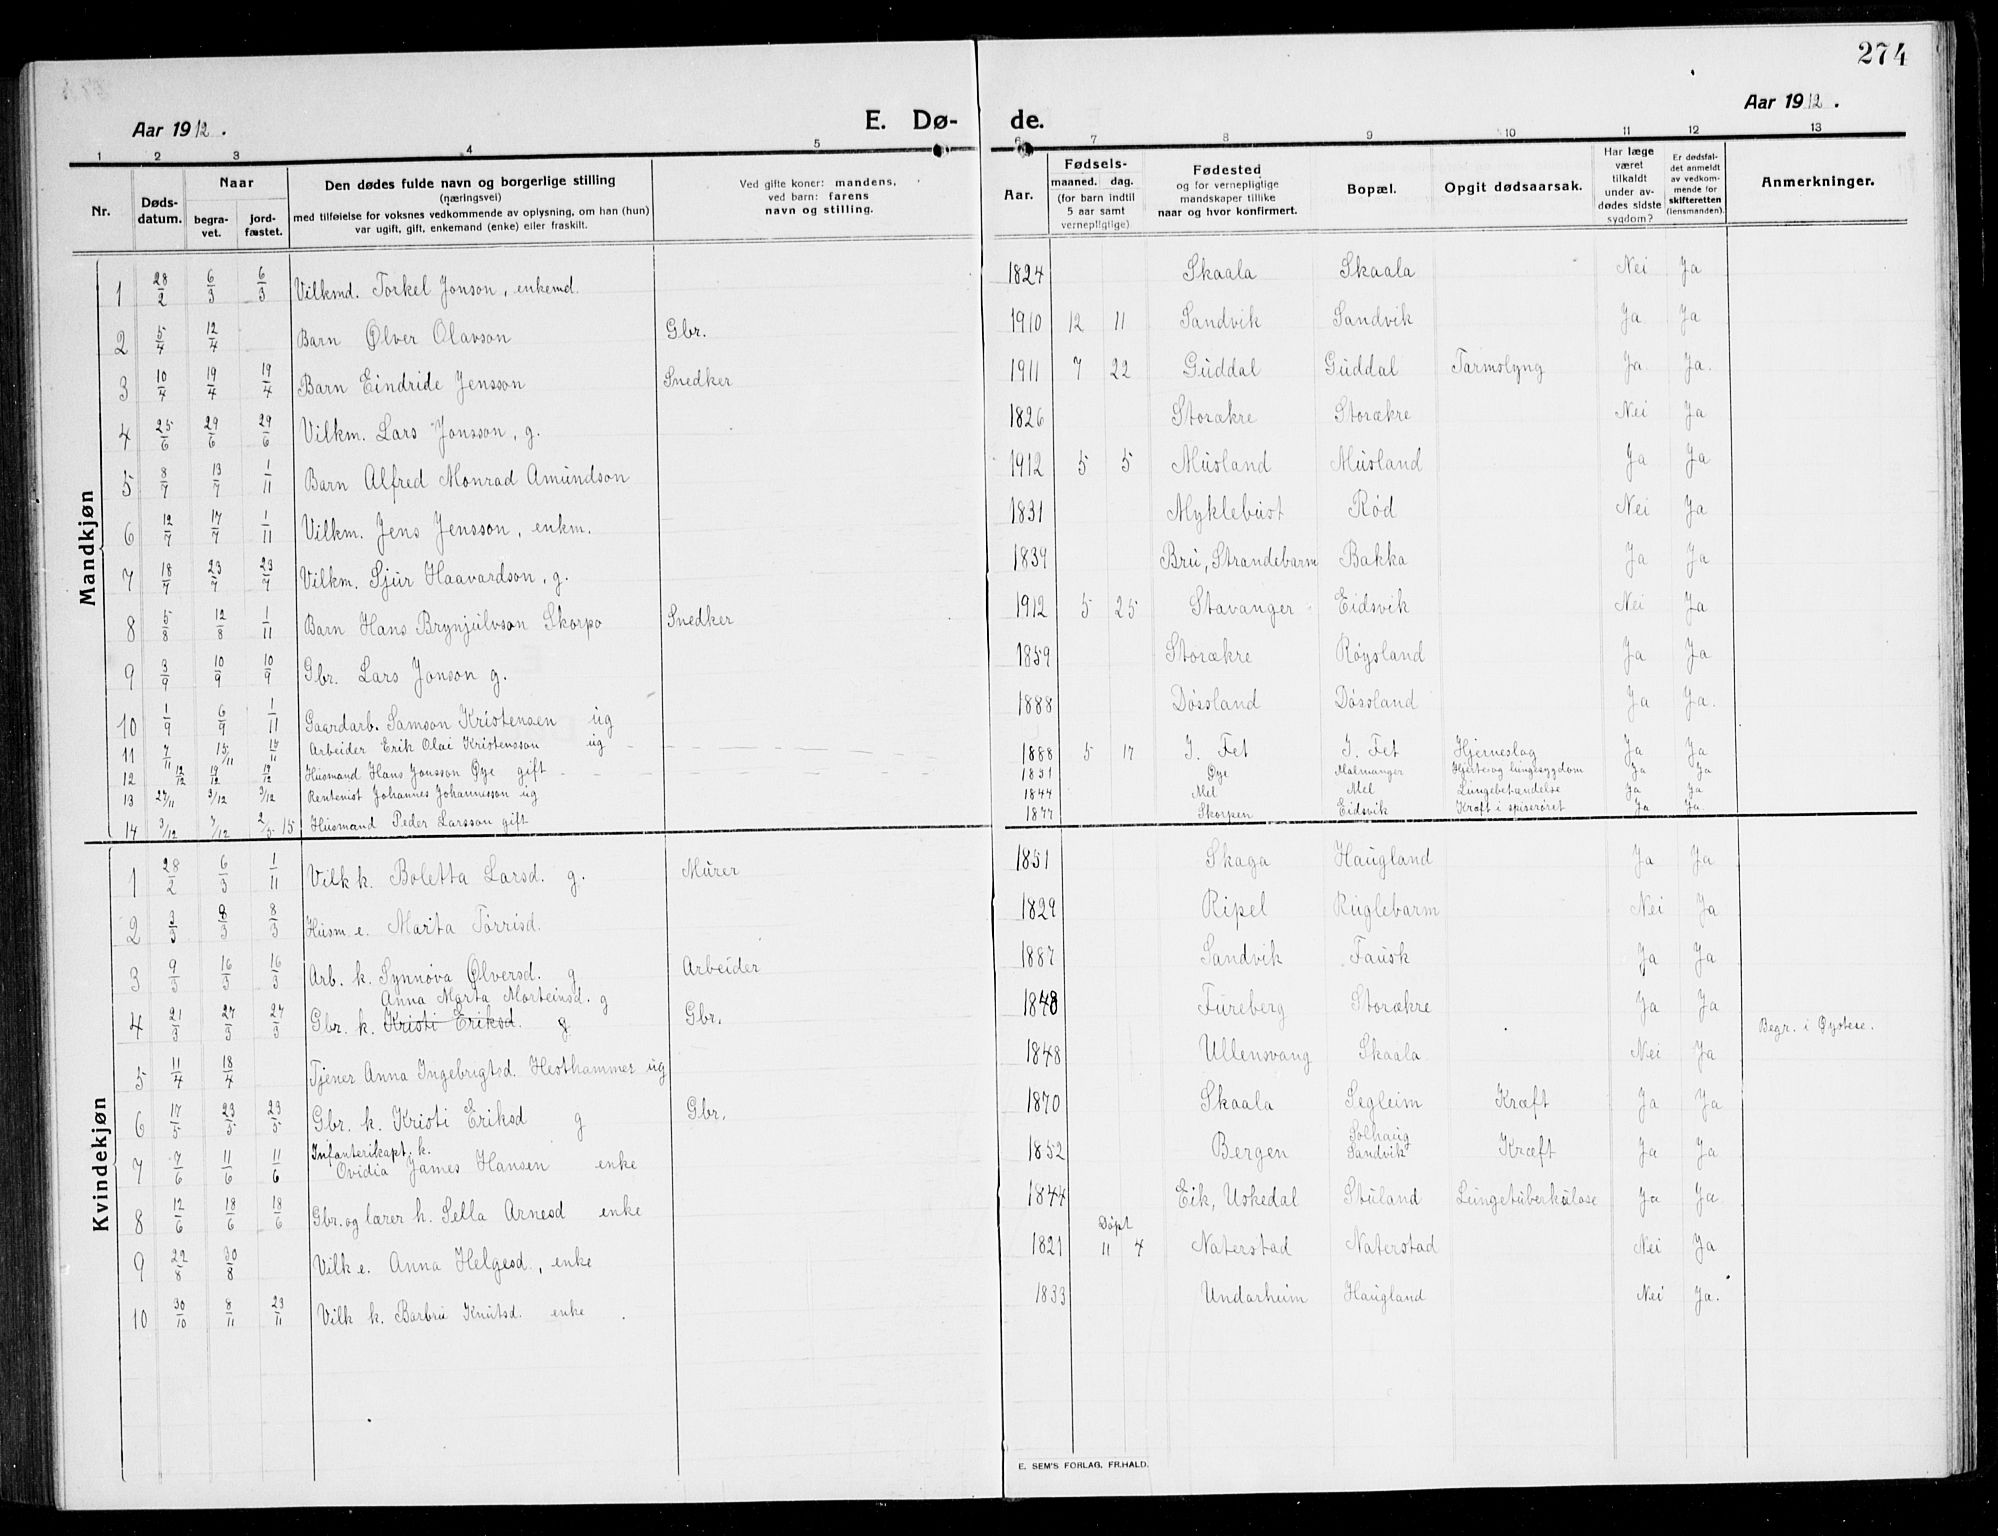 274
Aar 1912. E. Dø- de. Aar 1912.
1 2 3 4 5 6 7 8 9 10 11 12 13
Nr. Døds-datum. Naar begra-vet. jord-fæstet. Den dødes fulde navn og borgerlige stilling (næringsvei) med tilføielse for voksnes vedkommende av oplysning, om han (hun) var ugift, gift, enkemand (enke) eller fraskilt. Ved gifte koner: mandens, ved barn: farens navn og stilling. Aar. Fødsels- maaned. dag. (for barn indtil 5 aar samt vernepligtige) Fødested og for vernepligtige mandskaper tillike naar og hvor konfirmert. Bopæl. Opgit dødsaarsak. Har læge været tilkaldt under av-dødes sidste sygdom? Er dødsfal-det anmeldt av vedkom-mende for skifteretten (lensmanden). Anmerkninger.
Mandkjøn
1 28/2 6/3 6/3 Vilksmd. Torkel Jonson, enkemd. 1824 Skaala Skaala Nei Ja
2 5/4 12/4 Barn Ølver Olavson Gbr. 1910 12 11 Sandvik Sandvik Ja Ja
3 10/4 19/4 19/4 Barn Eindride Jensson Snedker 1911 7 22 Guddal Guddal Tarmslyng Ja Ja.
4 25/6 29/6 29/6 Vilkm. Lars Jonsson, g. 1826 Storækre Storækre Nei Ja
5 8/7 13/7 1/11 Barn Alfred Monrad Amundson 1912 5 5 Musland Musland Ja Ja
6 12/7 17/7 1/11 Vilkm. Jens Jensson, enkm. 1831 Myklebust Rød Nei Ja
7 18/7 23/7 23/7 Vilkm. Sjur Haavardson, g. 1839 Bru, Strandebarm Bakka Ja Ja
8 5/8 12/8 1/11 Barn Hans Brynjulvson Skorpo Snedker 1912 5 25 Stavanger Eidsvik Nei Ja
9 3/9 10/9 10/9 Gbr. Lars Jonson g. 1859 Storækre Røysland Ja Ja
10 1/9 6/9 1/11 Gaardarb. Samson Kristensen ug 1888 Døssland Døssland Ja Ja.
11 7/11 15/11 15/11 Arbeider Erik Olai Kristensson ug 1888 5 17 I. Fet I. Fet Hjerneslag Ja Ja
12 12/12 19/12 19/12 Husmand Hans Jonsson Øye gift 1831 Øye Malmanger Hjerte og lungesygdom Ja Ja
13 27/11 3/12 3/12 Rentenist Johannes Johannesson ug 1844 Mel Mel Lungebetændelse Ja Ja
14 3/12 7/12 2/5 15 Husmand Peder Larsson gift 1877 Skorpen Eidsvik Kræft i spiserøret Ja Ja.
Kvindekjøn
1 28/2 6/3 1/11 Vilk k. Boletta Larsd. g. Murer 1851 Skaga Haugland Ja Ja
2 3/3 8/3 8/3 Husm e. Marta Torrisd. 1829 Ripel Ruglebarm Nei Ja
3 9/3 16/3 16/3 Arb. k. Synnøva Ølversd. g Arbeider 1887 Sandvik Fausk Ja Ja
Anna Marta Morteinsd. g
4 21/3 27/3 27/3 Gbr. k. Kristi Eriksd. g Gbr. 1848 Fureberg Storækre Ja Ja
5 11/4 18/4 Tjener Anna Ingebrigtsd. Hesthammer ug 1848 Ullensvang Skaala Nei Ja Begr. i Øystese.
6 17/5 23/5 23/5 Gbr. k. Kristi Eriksd g Gbr. 1870 Skaala Segleim Kræft Ja Ja
Infanterikapt. k. Solhaug
7 7/6 11/6 11/6 Ovidia James Hansen enke 1852 Bergen Sandvik Kræft Ja Ja
8 12/6 18/6 18/6 Gbr. og lærer k. Sella Arnesd enke 1844 Eik, Uskedal Stuland Lungetuberkulose Ja Ja.
Døpt
9 22/8 30/8 Vilk e. Anna Helgesd., enke 1821 11 4 Naterstad Naterstad Nei Ja
10 30/10 8/11 23/11 Vilk k. Barbru Knutsd. enke 1833 Undarheim Haugland Nei Ja.
E. SEM'S FORLAG, FR.HALD.